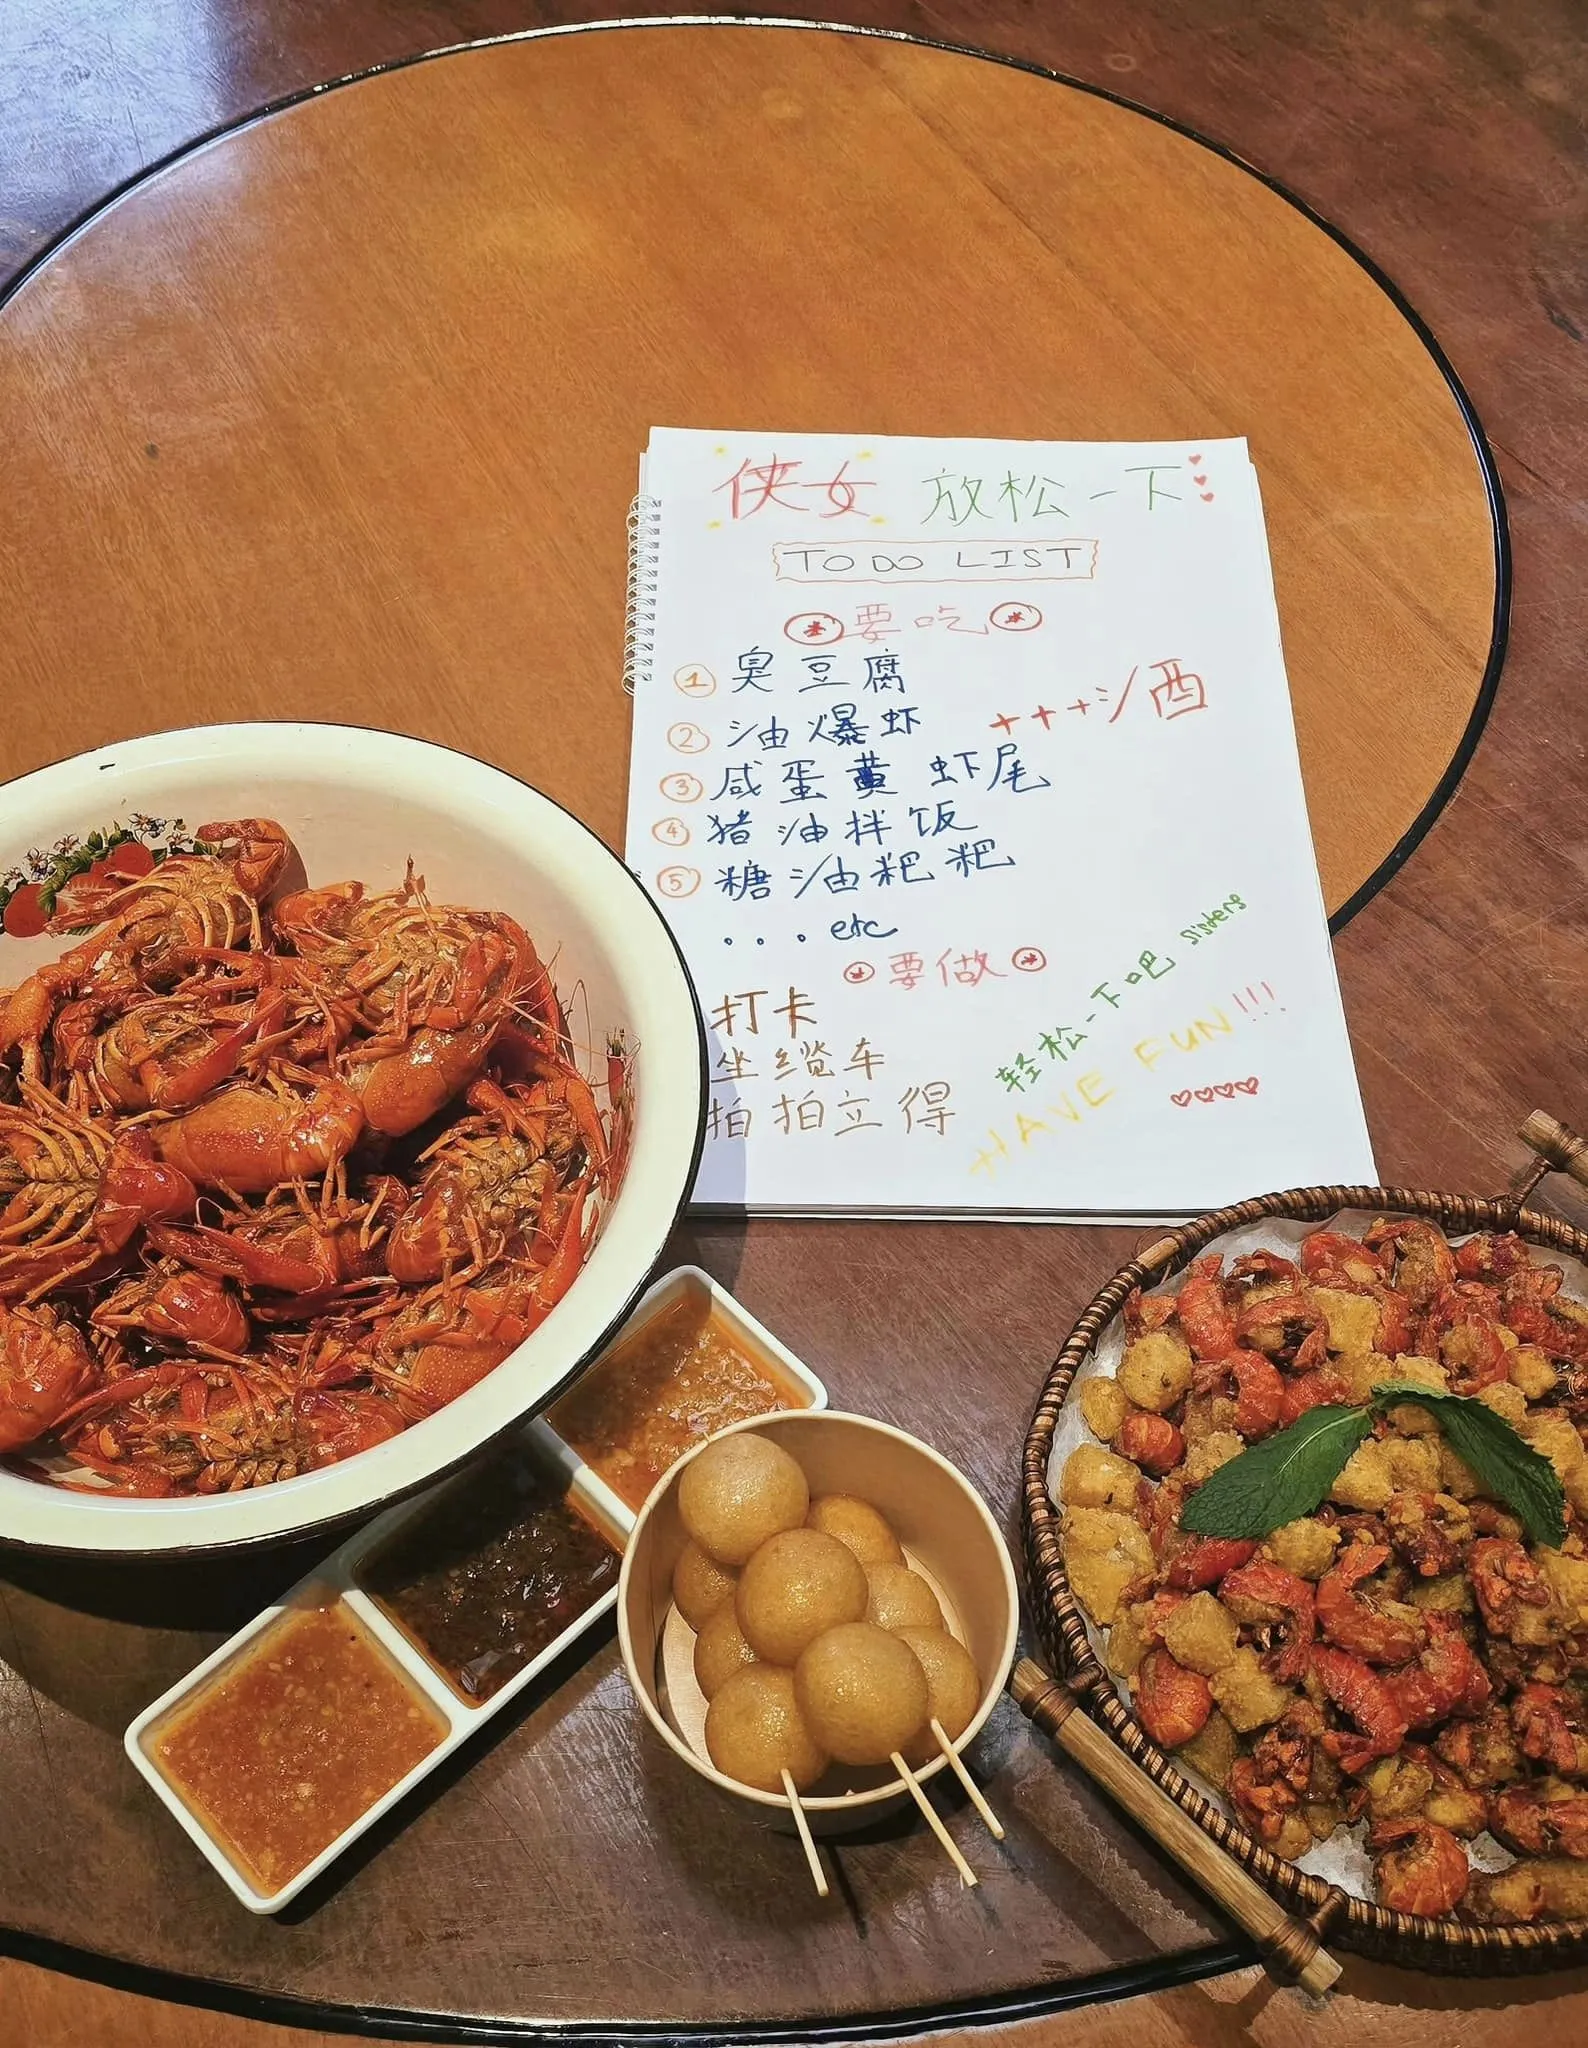 侠女 放松一下
TO DO LIST
要吃
① 臭豆腐
② 油爆虾
+++酒
③ 咸蛋黄虾尾
④ 猪油拌饭
⑤ 糖油粑粑
...etc
要做
打卡
坐缆车
拍拍立得
轻松一下吧 sisters
HAVE FUN!!!